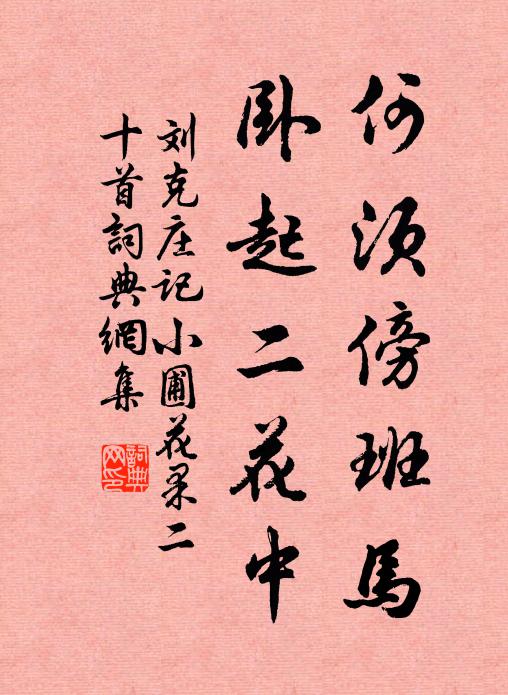 何須傍班馬
卧起二花中
刘克庄记小圃花果二
十首詞典網集
詞典
网印